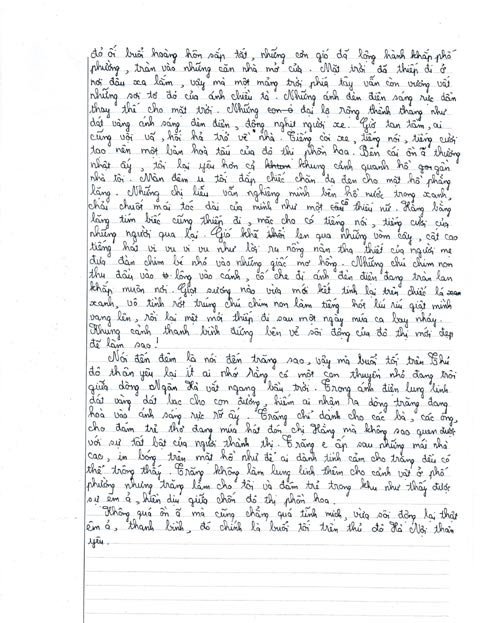 đỏ ối buổi hoàng hôn sắp tắt, những cơn gió đã lồng hành khắp phố
phường, tràn vào những căn nhà mở cửa. Mặt trời đã thiếp đi ở
nơi đâu xa lắm, vậy mà một mảng trời phía tây vẫn còn vương vất
những sợi tơ đỏ của ánh chiều tà. Những ánh đèn điện sáng rực dần
thay thế cho mặt trời. Những con đại lộ rộng thênh thang như
dát vàng ánh sáng đèn điện, đông nghẹt người xe. Giờ tan tầm, ai
cũng vội vã, hối hả trở về nhà. Tiếng còi xe, tiếng nói, tiếng cười
tạo nên một bản hoà tấu của đô thị phồn hoa. Bên cái ồn ã thường
nhật ấy, tôi lại yêu hơn cả khung cảnh quanh hồ gần
nhà tôi. Màn đêm u tối đắp chiếc chăn dạ đen cho mặt hồ phẳng
lặng. Những chị liễu vẫn nghiêng mình bên hồ nước trong xanh,
chải chuốt mái tóc dài của mình như một cô thiếu nữ. Hàng bằng
lăng tím biếc cũng thiếp đi, mặc cho có tiếng nói, tiếng cười của
những người qua lại. Gió khẽ len qua những vòm cây, cất cao
tiếng hát vi vu vi vu như lời ru nồng nàn tha thiết của người mẹ
đưa đàn chim bé nhỏ vào những giấc mơ hồng. Những chú chim non
thu đầu vào lông vào cánh, cố che đi ánh đèn điện đang tràn lan
khắp muôn nơi. Giọt sương nào vừa mới kết tinh lại trên chiếc lá
xanh, vô tình rớt trúng chú chim non làm tiếng hót líu ríu giật mình
vang lên, rồi lại mệt mỏi thiếp đi sau một ngày múa ca bay nhảy.
Khung cảnh thanh bình đứng bên vẻ sôi động của đô thị mới đẹp
đẽ làm sao!
Nói đến đêm là nói đến trăng sao, vậy mà buổi tối trên Thủ
đô thân yêu lại ít ai nhớ rằng có một con thuyền nhỏ đang trôi
giữa dòng Ngân Hà vắt ngang bầu trời. Trong ánh điện lung linh
dát vàng dát bạc cho con đường, hiếm ai nhận ra dòng trăng đang
hoà vào ánh sáng rực rỡ ấy. Trăng chỉ dành cho các bà, các ông,
cho đám trẻ thơ đang múa hát đón chị Hằng mà không sao quen được
với sự tất bật của người thành thị. Trăng e ấp sau những mái nhà
cao, in bóng trên mặt hồ như để ai dành tình cảm cho trăng đều có
thể trông thấy. Trăng không làm lung linh thêm cho cảnh vật ở phố
phường nhưng trăng làm cho tôi và đám trẻ trong khu như thấy được
sự êm ả, hiền dịu giữa chốn đô thị phồn hoa.
Không quá ồn ã mà cũng chẳng quá tĩnh mịch, vừa sôi động lại thật
êm ả, thanh bình, đó chính là buổi tối trên thủ đô Hà Nội thân
yêu.